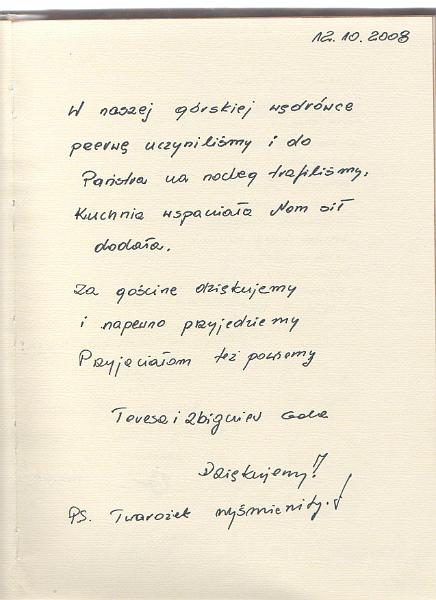 12.10.2008
W naszej górskiej wędrówce
przerwę uczyniliśmy i do
Państwa na nocleg trafiliśmy.
Kuchnia wspaniała Nam sił
dodała.
Za gościnę dziękujemy
i napewno przyjedziemy
Przyjaciołom też powiemy
Teresa i Zbigniew
Dziękujemy!!
PS. Twarożek wyśmienity.!